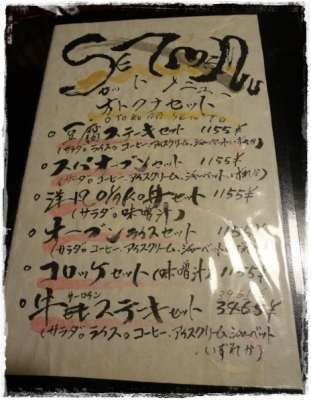 SETメニュー
セットメニュー
オトクナセット
OTOKUNA SETTO
○豆腐ステーキセット 1155¥
(サラダ。ライス。コーヒー、アイスクリーム、シャーベット、いずれか)
○スパオーブンセット 1155¥
(サラダ。コーヒー、アイスクリーム、シャーベット、いずれか)
セット 1155¥
(サラダ。味噌汁)
○オーブンライスセット 1155¥
(サラダ。コーヒー、アイスクリーム、シャーベット、いずれか)
○コロッケセット(味噌汁)
サーロイン
○牛ステーキセット 3465¥
(サラダ。ライス。コーヒー、アイスクリーム、シャーベット
いずれか)